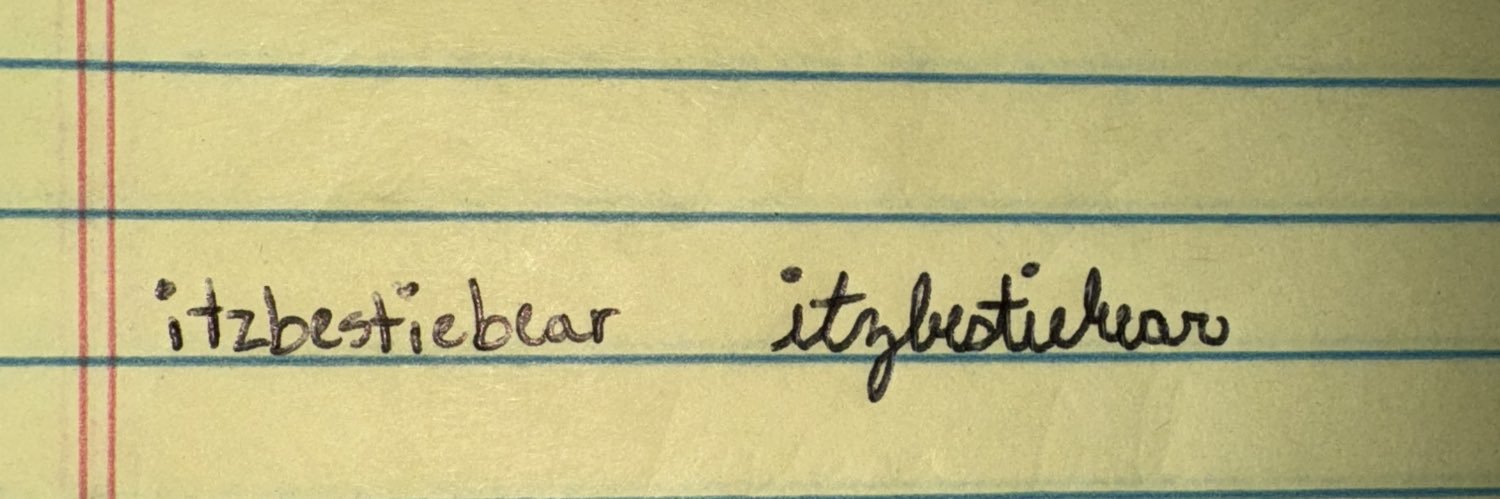 itzbestiebear itzbestiebear